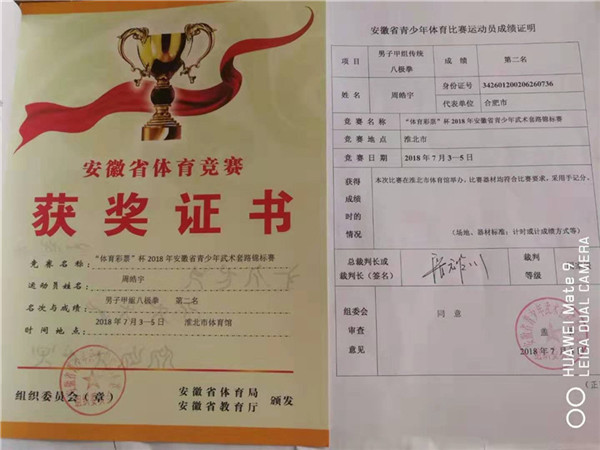 安徽省体育竞赛
获奖证书
竞赛名称： “体育彩票”杯2018年安徽省青少年武术套路锦标赛
运动员姓名： 周皓宇
名次与成绩： 男子甲组八极拳 第二名
时间地点： 2018年7月3—5日 淮北市体育馆
组织委员会（章）
安徽省体育局
安徽省教育厅
颁发
安徽省青少年体育比赛运动员成绩证明
项目 男子甲组传统八极拳 成绩 第二名
姓名 周皓宇 身份证号 342601200206260736
代表单位 合肥市
竞赛名称 “体育彩票”杯2018年安徽省青少年武术套路锦标赛
竞赛地点 淮北市
竞赛日期 2018年7月3—5日
获得成绩时的情况
本次比赛在淮北市体育馆举办，比赛器材均符合比赛要求，采用手记分。
（场地、器材标准；计时或计成绩方式等）
总裁判长或裁判长（签名）
裁判等级
组委会审查意见
同意
盖
2018年7
（正
HUAWEI Mate 9
LEICA DUAL CAMERA